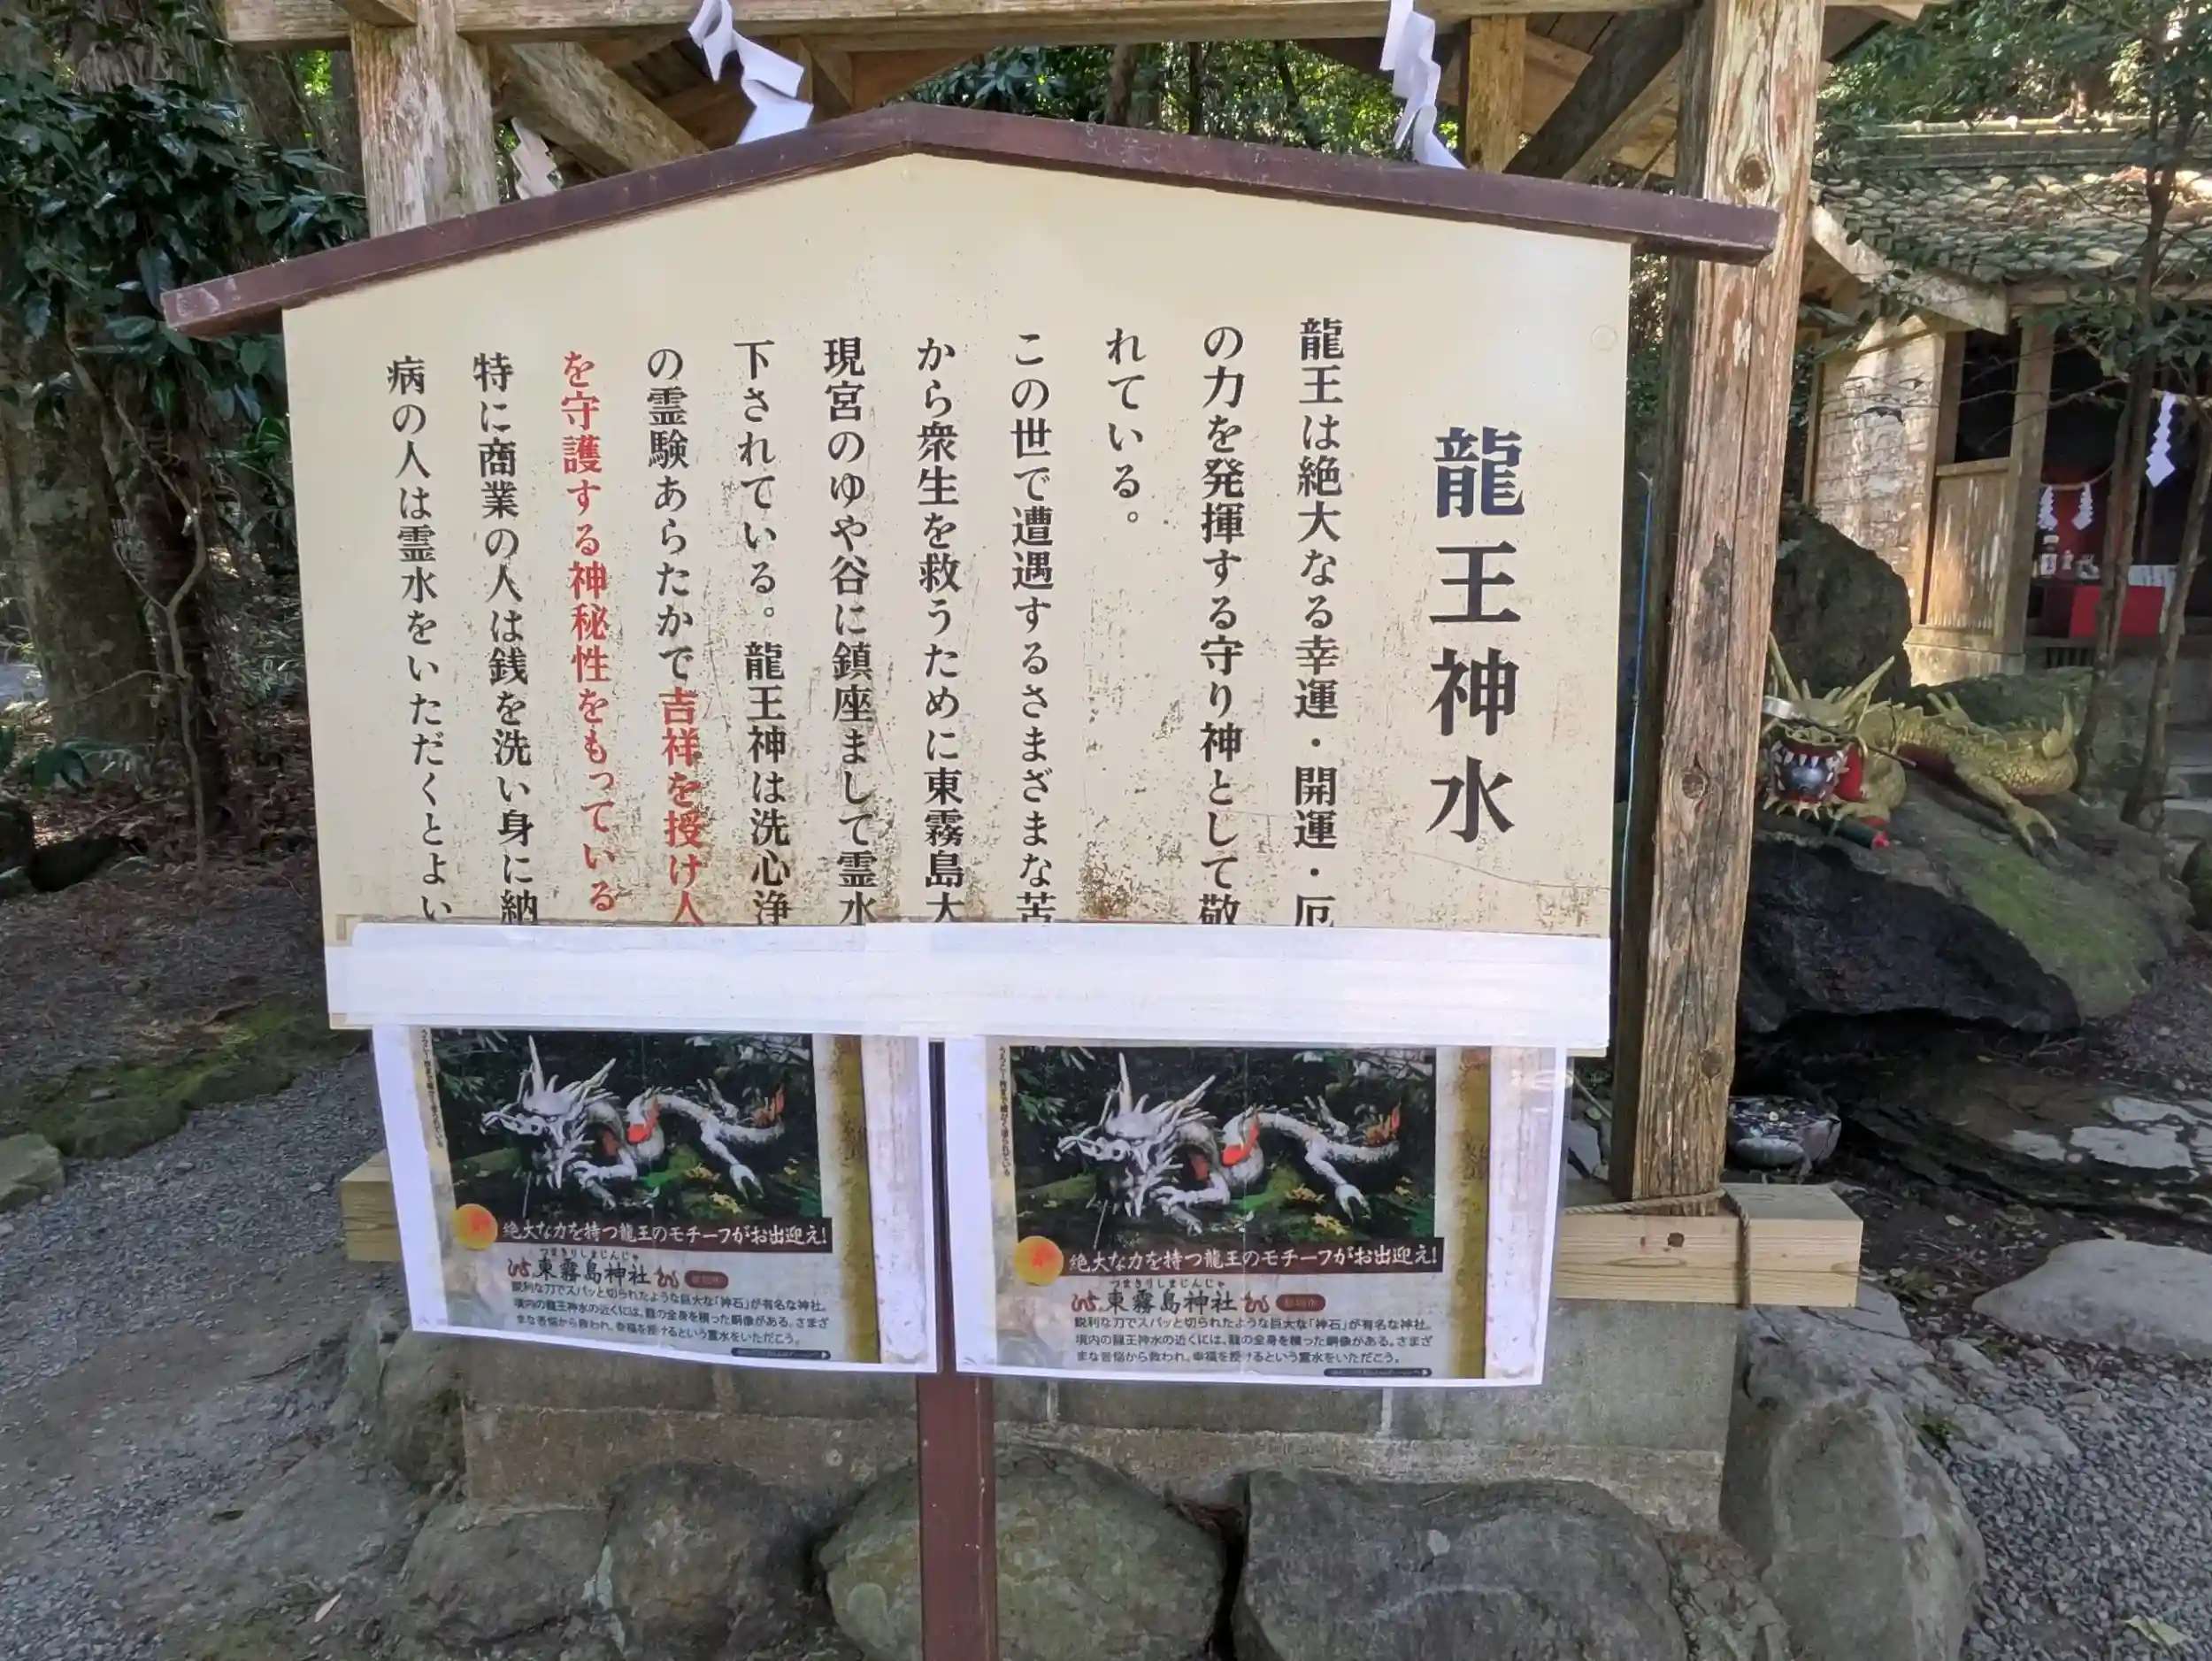 龍王神水
龍王は絶大なる幸運・開運・厄
の力を発揮する守り神として敬
れている。
この世で遭遇するさまざまな苦
から衆生を救うために東霧島大
現宮のゆや谷に鎮座まして霊水
下されている。龍王神は洗心浄
の霊験あらたかで吉祥を授け人
を守護する神秘性をもっている
特に商業の人は銭を洗い身に納
病の人は霊水をいただくとよい
絶大な力を持つ龍王のモチーフがお出迎え!
つまきりしまじんじゃ
東霧島神社
鋭利な刀でスパッと切られたような巨大な「神石」が有名な神社。
境内の龍王神水の近くには、龍の全身を模った銅像がある。さまざ
まな苦悩から救われ、幸福を授けるという霊水をいただこう。
絶大な力を持つ龍王のモチーフがお出迎え!
つまきりしまじんじゃ
東霧島神社
鋭利な刀でスパッと切られたような巨大な「神石」が有名な神社。
境内の龍王神水の近くには、龍の全身を模った銅像がある。さまざ
まな苦悩から救われ、幸福を授けるという霊水をいただこう。